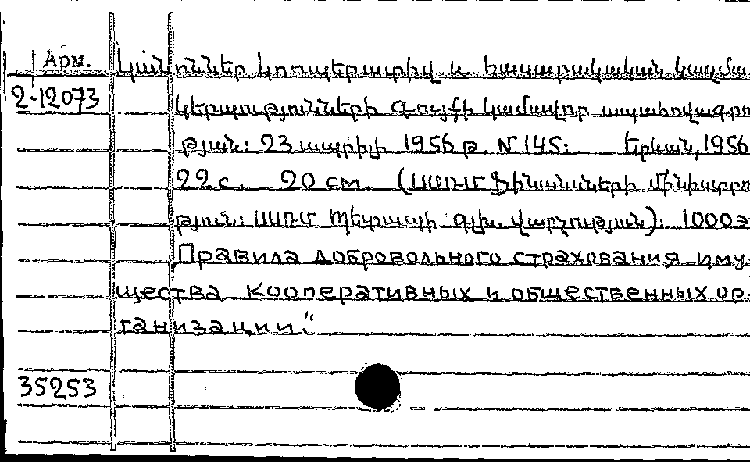 Арм. Կանոններ կոոպերատիվ և հասարակական կազմա
2-12073 կերպությունների գույքի կամավոր ապահովագրո
թյան: 23 ապրիլի 1956 թ. N 145: Երևան, 1956
22 с. 20 см. (ՍՍՌՄ Ֆինանսների մինիստրո
թյուն: ՍՍՌՄ Պետապի գլխ. վարչություն): 1000э
„Правила добровольного страхования иму-
щества кооперативных и общественных ор-
ганизации."
35253